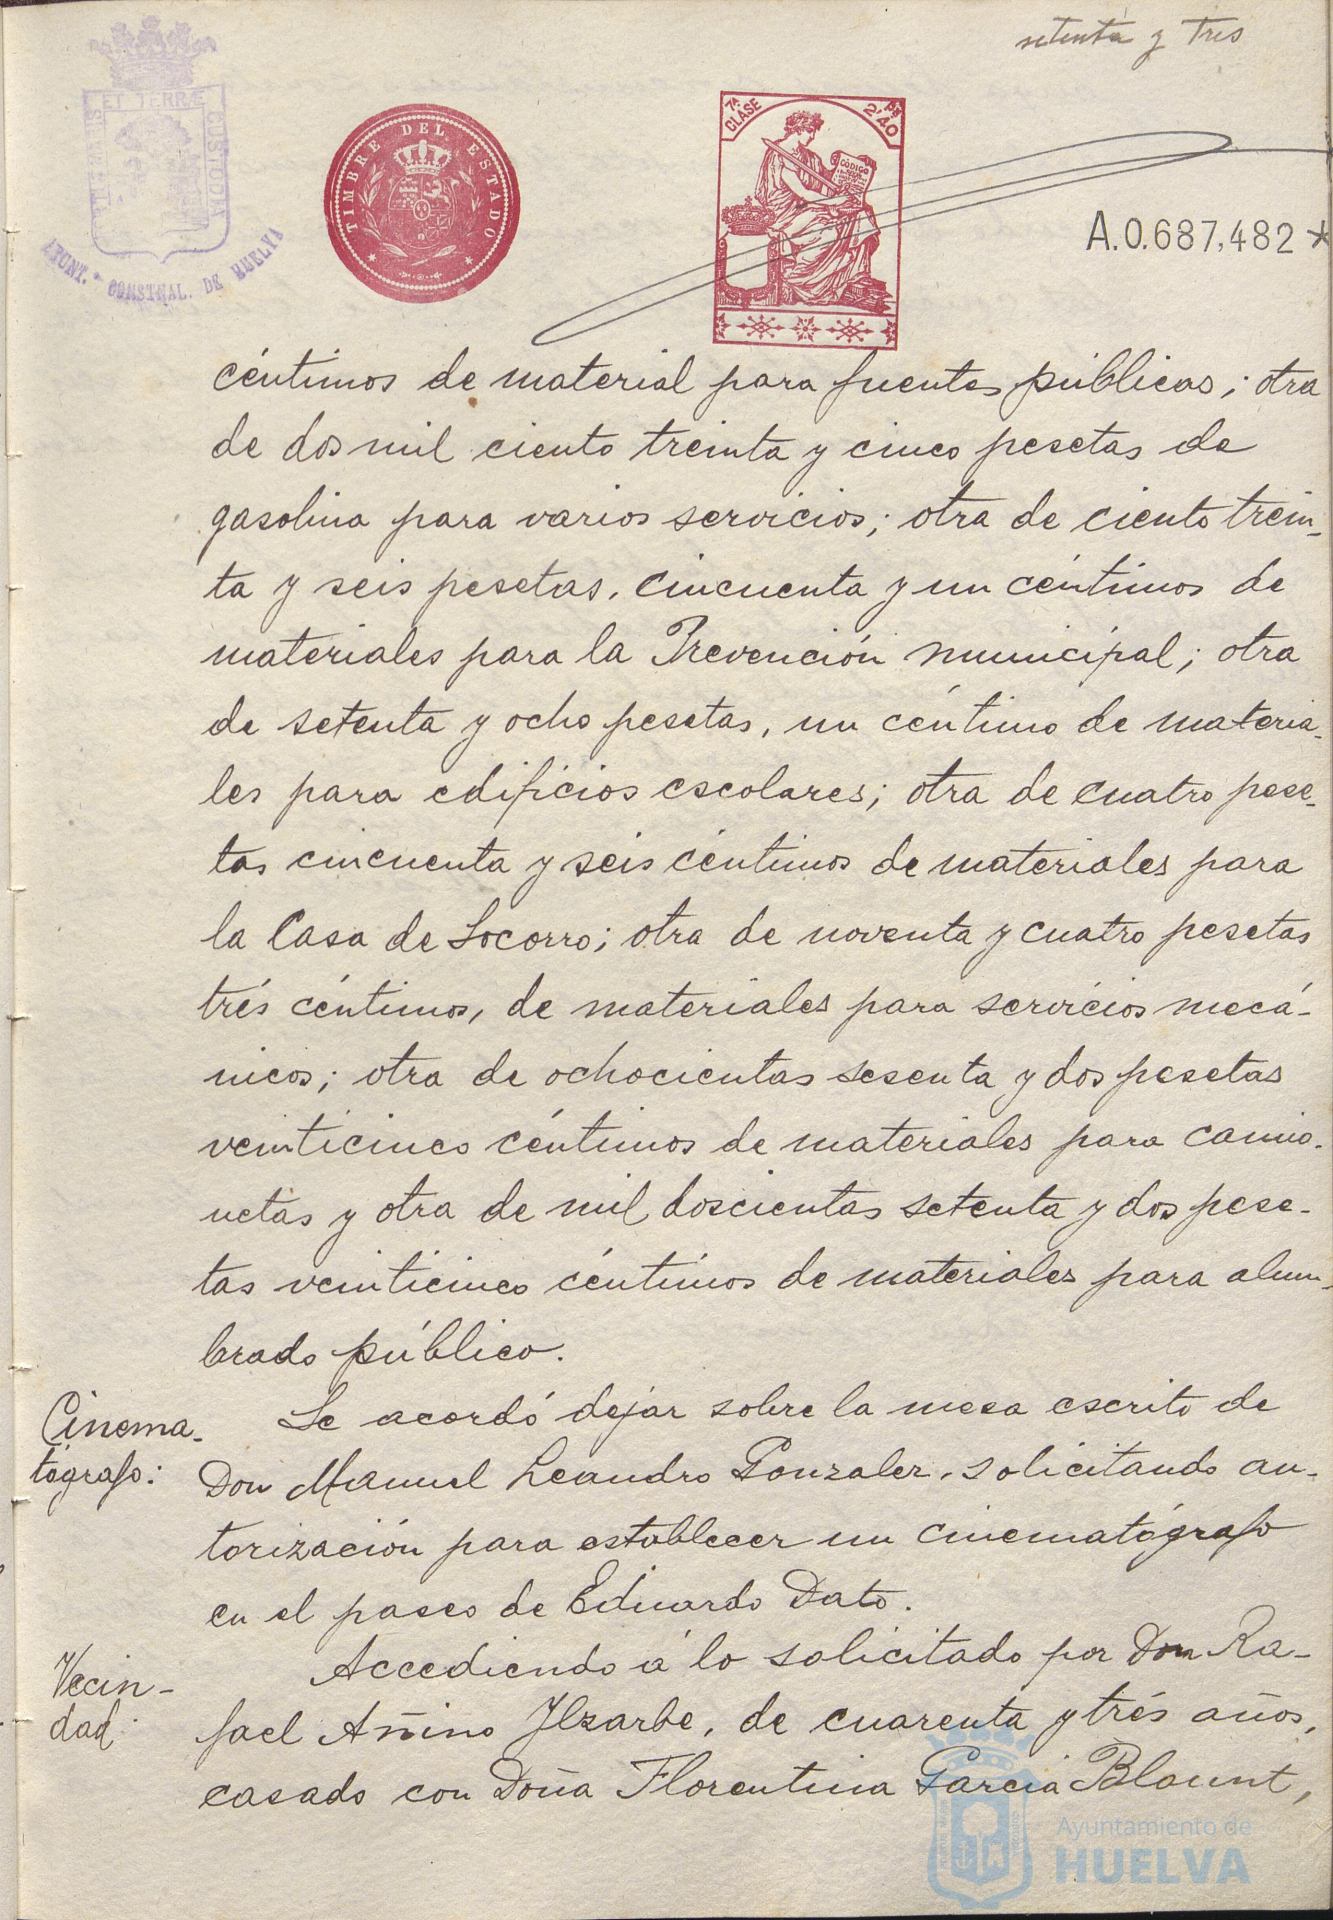 setenta y tres
PORTUS MARIS ET TERRÆ CUSTODIA
AYUNT. CONSTNAL. DE HUELVA
TIMBRE DEL ESTADO
7ª CLASE
2'40
CÓDIGO
A.0.687,482*
céntimos de material para fuentes públicas; otra
de dos mil ciento treinta y cinco pesetas de
gasolina para varios servicios; otra de ciento trein-
ta y seis pesetas, cincuenta y un céntimos de
materiales para la Prevención municipal; otra
de setenta y ocho pesetas, un céntimo de materia-
les para edificios escolares; otra de cuatro pese-
tas cincuenta y seis céntimos de materiales para
la Casa de Socorro; otra de noventa y cuatro pesetas
trés céntimos, de materiales para servicios mecá-
nicos; otra de ochocientas sesenta y dos pesetas
veinticinco céntimos de materiales para camio-
netas y otra de mil doscientas setenta y dos pese-
tas veinticinco céntimos de materiales para alum-
brado público.
Cinema-
tógrafo:
Se acordó dejar sobre la mesa escrito de
Don Manuel Leandro Gonzalez, solicitando au-
torización para establecer un cinematógrafo
en el paseo de Eduardo Dato.
Vecin-
dad:
Accediendo á lo solicitado por Don Ra-
fael Añino Ylzarbe, de cuarenta y trés años,
casado con Doña Florentina Garcia Blount,
Ayuntamiento de
HUELVA